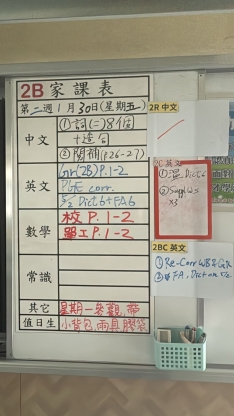 2B 家課表
第二週 1月30日(星期五)
中文
①詞(二)8個
+造句
②閱補(p.26-27)
英文
Gr(2B) P.1-2
Dict corr.
Dict 6+FA6
數學
校 P.1-2
單工 P.1-2
常識
其它
星期一參觀,帶
值日生
小背包,雨具,膠袋
2R 中文
2C 英文
①溫 Dict 6
② Supp WS
x3
2BC 英文
① Re-Corr WB & GR
② FA, Dict